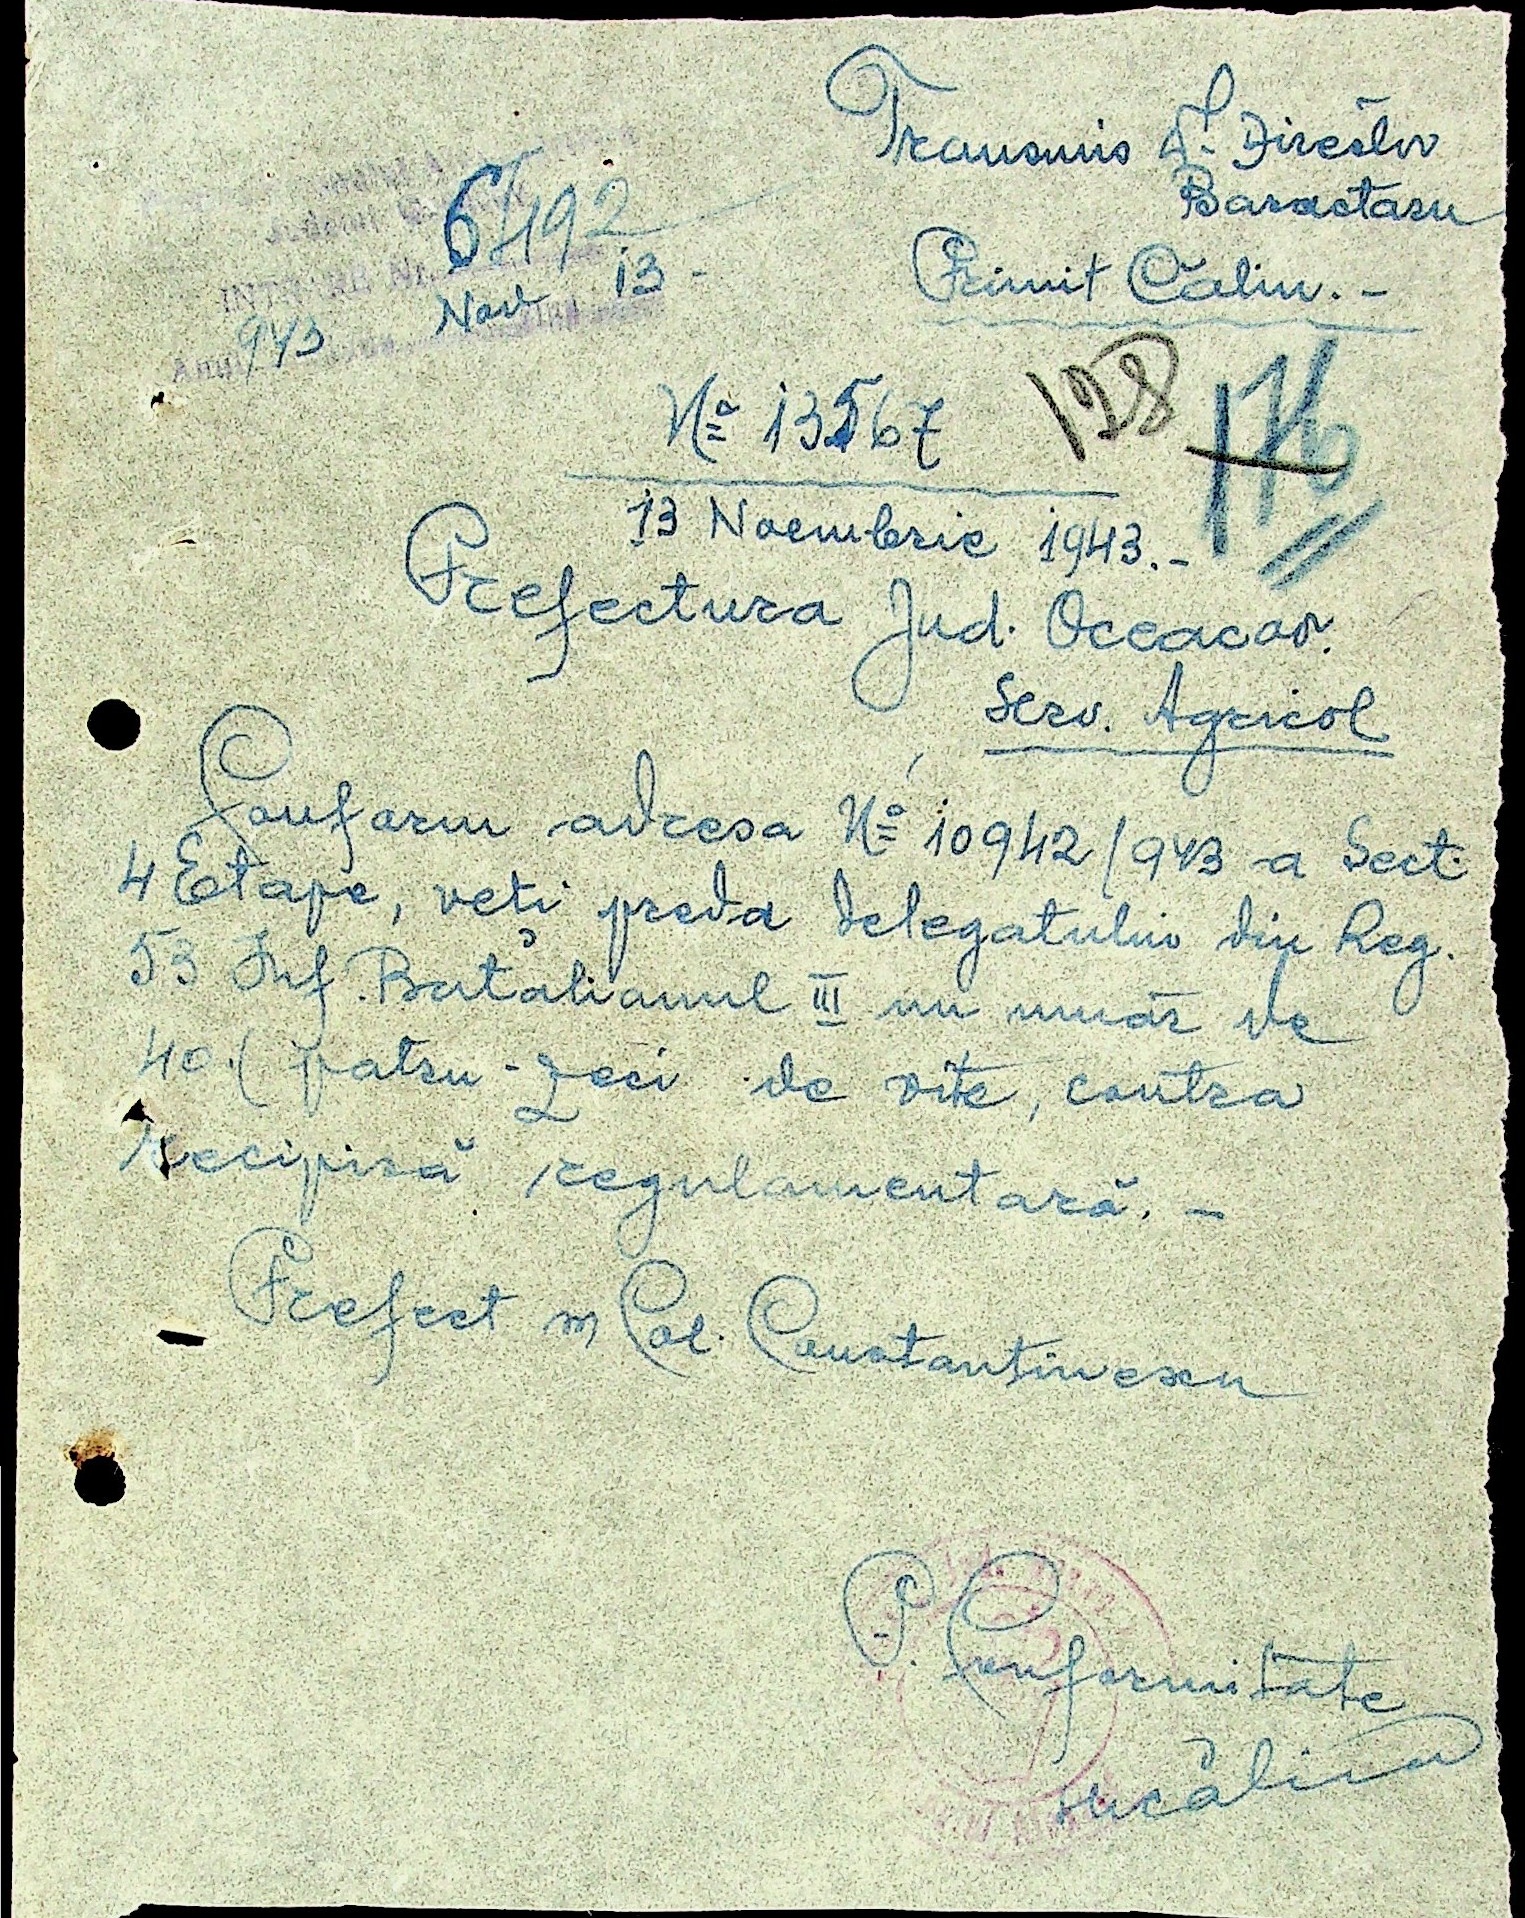 Transmis Dl. Director
Baractaru
Primit Călin. –
6492
INTRARE Nr.
Nov 13 -
Anul 943
Nº 13567
128 176
13 Noembrie 1943. –
Prefectura Jud. Oceacov.
Serv. Agricol
Conform adresa Nº 10942/943 a Sect.
4 Etape, veți preda delegatului din Reg.
53 Inf. Batalionul III un număr de
40 (patru-zeci de vite, contra
recipisă regulamentară. –
Prefect m Col. Constantinescu
P. Conformitate